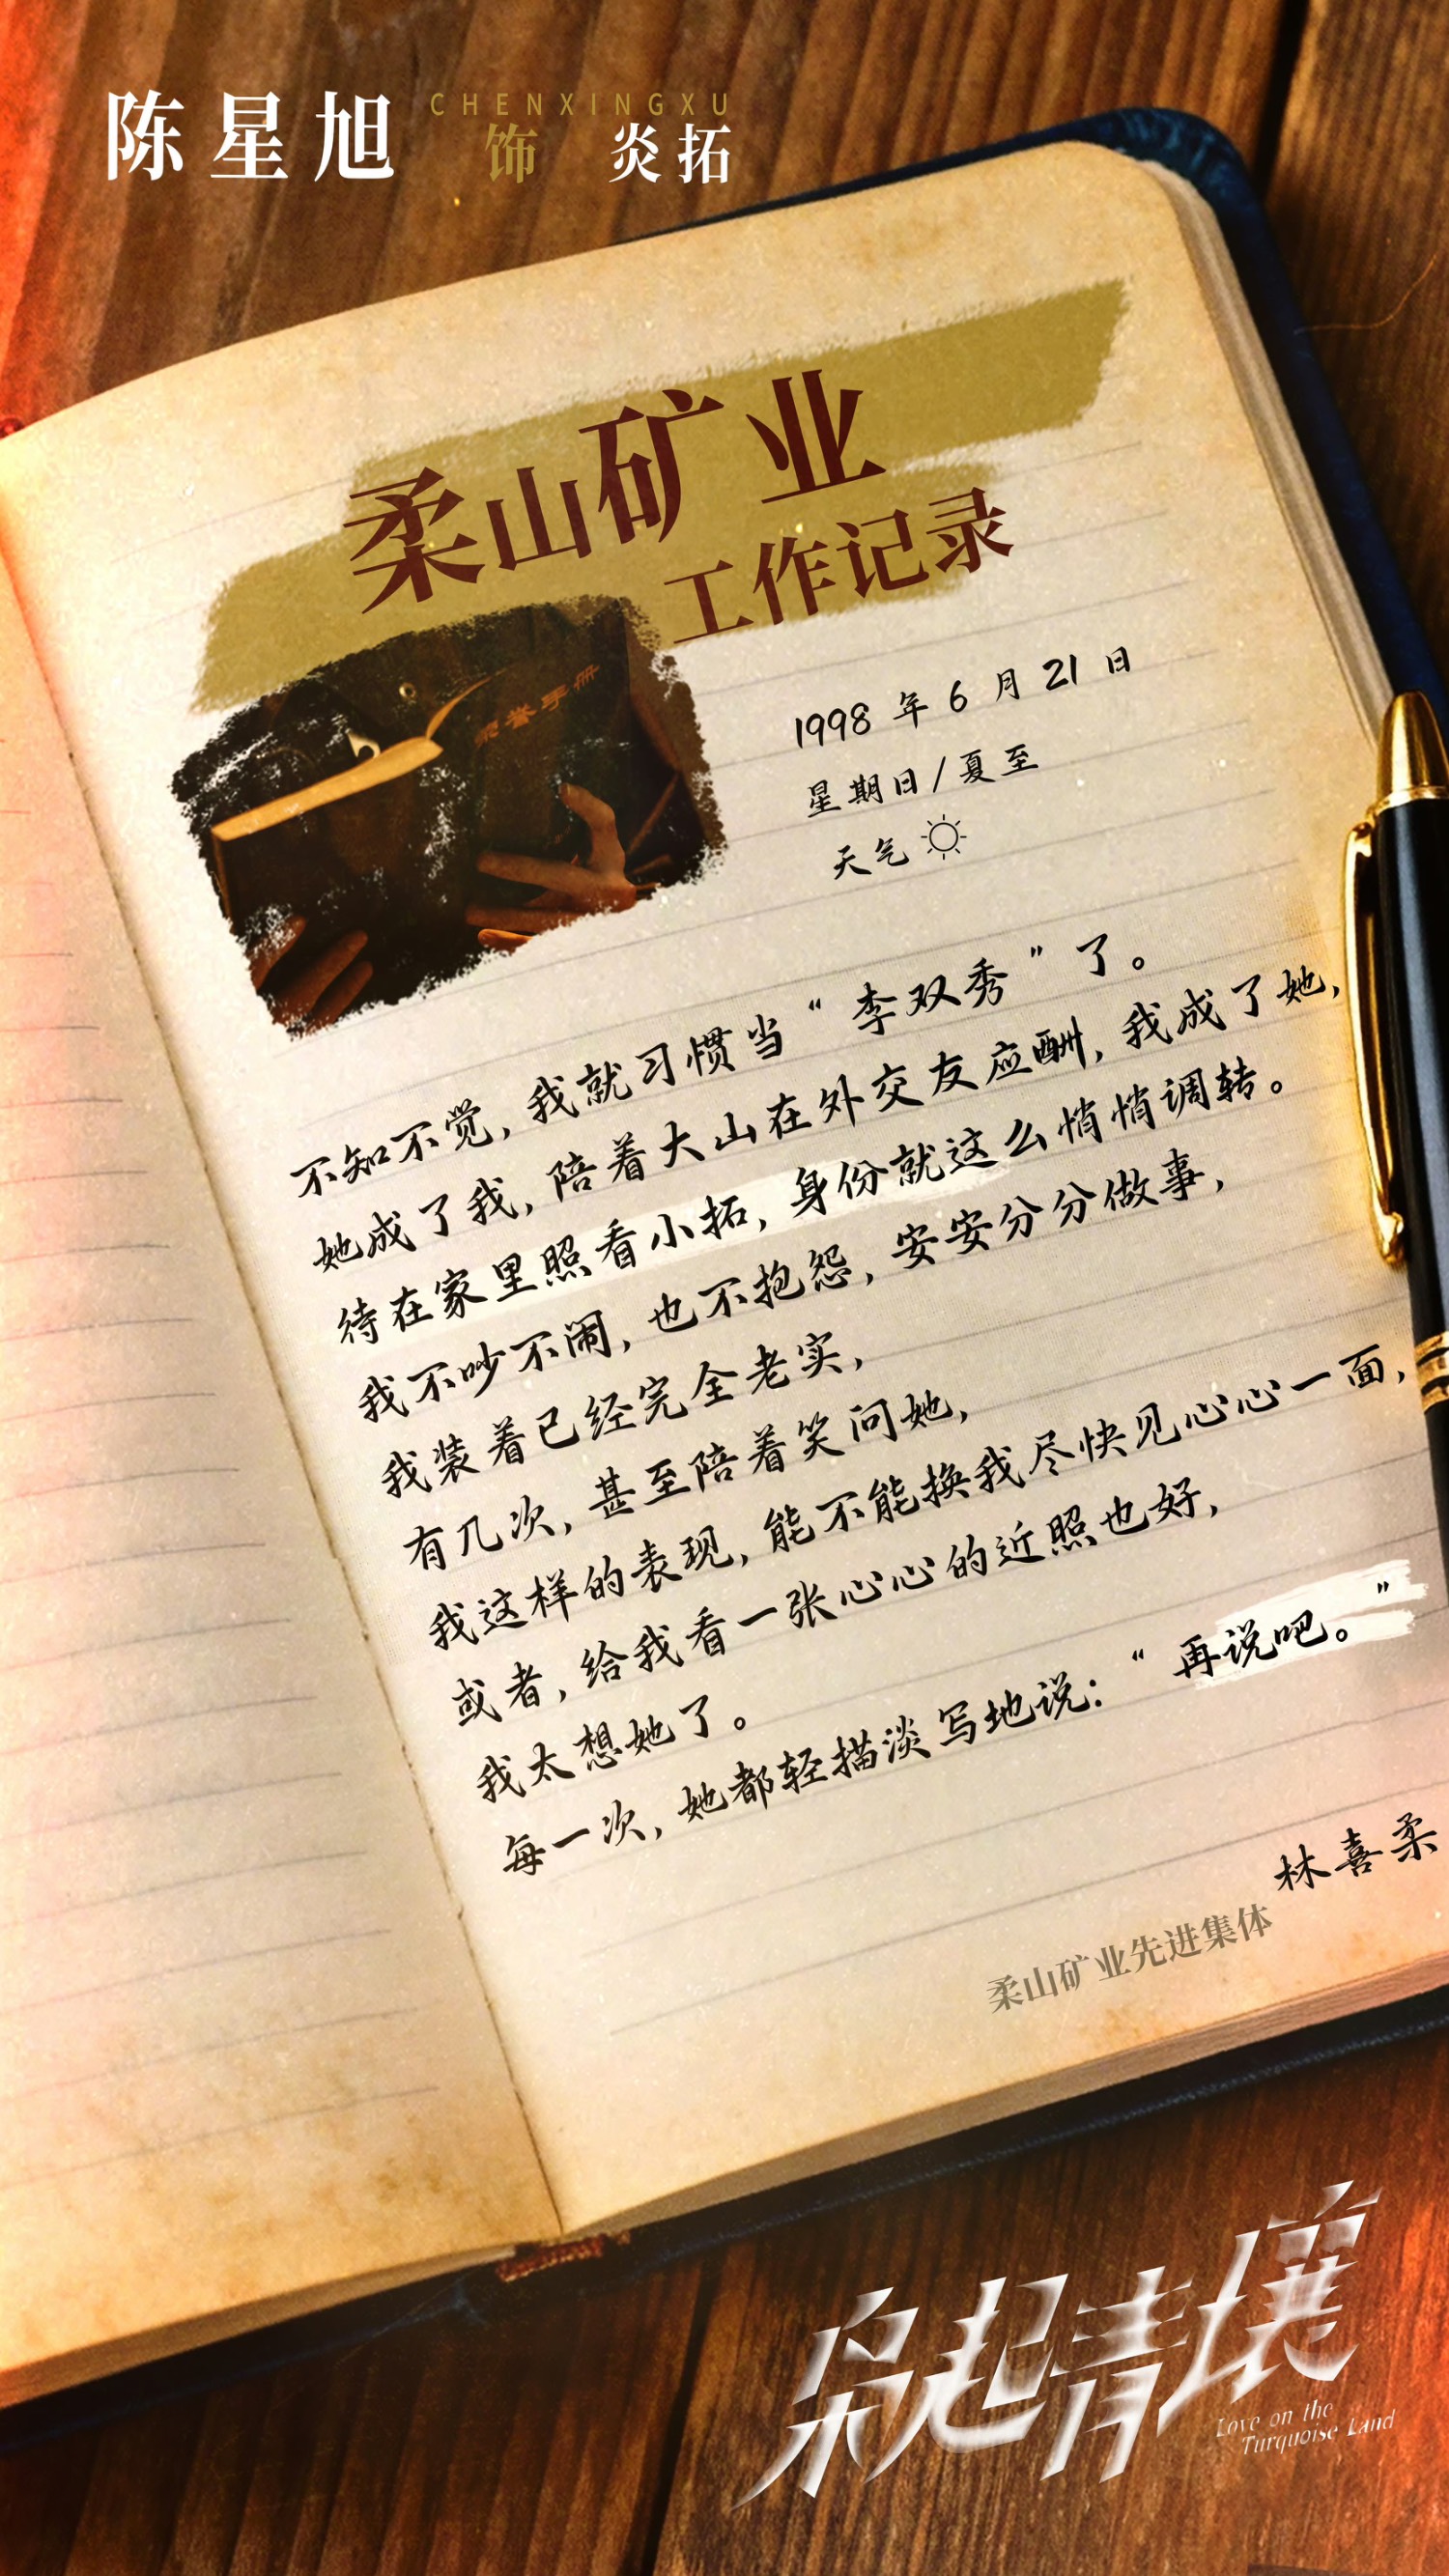 陈星旭
CHENXINGXU
饰 炎拓
柔山矿业
工作记录
荣誉手册
1998年6月21日
星期日/夏至
天气
不知不觉，我就习惯当“李双秀”了。
她成了我，陪着大山在外交友应酬，我成了她，
待在家里照看小拓，身份就这么悄悄调转。
我不吵不闹，也不抱怨，安安分分做事，
我装着已经完全老实，
有几次，甚至陪着笑问她，
我这样的表现，能不能换我尽快见心心一面，
或者，给我看一张心心的近照也好，
我太想她了。
每一次，她都轻描淡写地说：“再说吧。”
林喜柔
柔山矿业先进集体
枭起青壤
Love on the
Turquoise Land